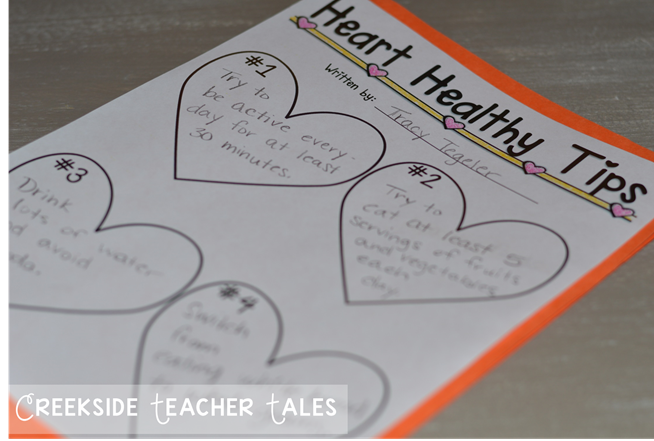 Heart Healthy Tips
Written by: Tracy Tegeler
#1
Try to
be active every-
day for at least
30 minutes.
#2
Try to
eat at least 5
servings of fruits
and vegetables
each
day.
#3
Drink
lots of water
avoid
#4
Switch
from
eating
CREEKSIDE TEACHER TALES